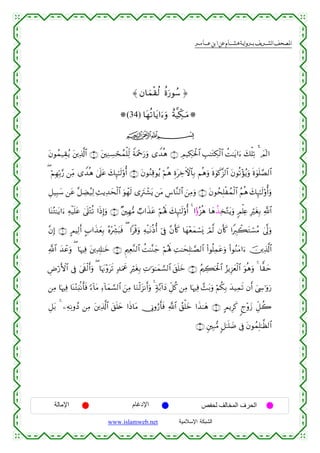 المصحف الشريف برواية هشام عن ابن عامر
﴿ سُورَةُ لُقْمَان ﴾
* مَكِّيَّةٌ وَءَايَاتُهَا (34) *
بِسْمِ اللَّهِ الرَّحْمَٰنِ الرَّحِيمِ
الٓمٓ ۚ تِلْكَ ءَايَٰتُ الْكِتَٰبِ الْحَكِيمِ ۝ هُدًى وَرَحْمَةً لِّلْمُحْسِنِينَ ۝ الَّذِينَ يُقِيمُونَ
الصَّلَوٰةَ وَيُؤْتُونَ الزَّكَوٰةَ وَهُم بِالْأَخِرَةِ هُمْ يُوقِنُونَ ۝ أُوْلَٰٓئِكَ عَلَىٰ هُدًى مِّن رَّبِّهِمْ ۖ
وَأُوْلَٰٓئِكَ هُمُ الْمُفْلِحُونَ ۝ وَمِنَ النَّاسِ مَن يَشْتَرِى لَهْوَ الْحَدِيثِ لِيُضِلَّ عَن سَبِيلِ
اللَّهِ بِغَيْرِ عِلْمٍ وَيَتَّخِذُهَا هُزُؤًا ۚ أُوْلَٰٓئِكَ لَهُمْ عَذَابٌ مُّهِينٌ ۝ وَإِذَا تُتْلَىٰ عَلَيْهِ ءَايَٰتُنَا
وَلَّىٰ مُسْتَكْبِرًا كَأَن لَّمْ يَسْمَعْهَا كَأَنَّ فِىٓ أُذُنَيْهِ وَقْرًا ۖ فَبَشِّرْهُ بِعَذَابٍ أَلِيمٍ ۝ إِنَّ
الَّذِينَ ءَامَنُوا وَعَمِلُوا الصَّٰلِحَٰتِ لَهُمْ جَنَّٰتُ النَّعِيمِ ۝ خَٰلِدِينَ فِيهَا ۖ وَعْدَ اللَّهِ
حَقًّا ۚ وَهُوَ الْعَزِيزُ الْحَكِيمُ ۝ خَلَقَ السَّمَٰوَٰتِ بِغَيْرِ عَمَدٍ تَرَوْنَهَا ۖ وَأَلْقَىٰ فِى الْأَرْضِ
رَوَٰسِىَ أَن تَمِيدَ بِكُمْ وَبَثَّ فِيهَا مِن كُلِّ دَآبَّةٍ ۚ وَأَنزَلْنَا مِنَ السَّمَآءِ مَآءً فَأَنۢبَتْنَا فِيهَا مِن
كُلِّ زَوْجٍ كَرِيمٍ ۝ هَٰذَا خَلْقُ اللَّهِ فَأَرُونِى مَاذَا خَلَقَ الَّذِينَ مِن دُونِهِۦ ۚ بَلِ
الظَّٰلِمُونَ فِى ضَلَٰلٍ مُّبِينٍ ۝
الحرف المخالف لحفص الإدغام الإمالة
الشبكة الإسلامية www.islamweb.net